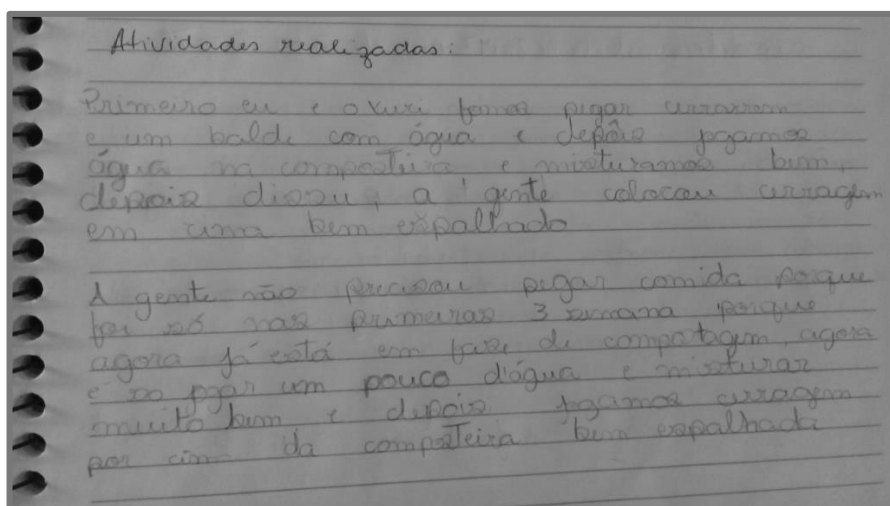 Atividades realizadas:
Primeiro eu e o Yuri fomos pegar
e um balde com água e depois jogamos
água na composteira e misturamos bem,
depois disso, a gente colocou
em cima bem espalhado
A gente não precisou pegar comida porque
foi só nas primeiras 3 semana porque
agora já está em fase de compostagem, agora
é so jogar um pouco d'água e misturar
muito bem e depois jogamos
por cima da composteira bem espalhada